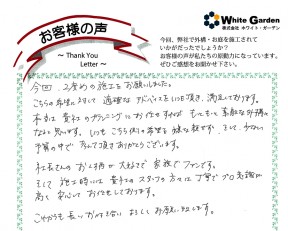 お客様の声
〜 Thank You
Letter 〜
White Garden
株式会社 ホワイト・ガーデン
今回、弊社で外構・お庭を施工されて
いかがだったでしょうか？
お客様の声が私たちの原動力になっています。
ぜひご感想をお聞かせ下さい。
今回、2度めの施工をお願いしました。
こちらの希望に対して適確なアドバイスをいただき、満足しております。
本当は貴社のプランニングにお任せすれば もっともっと素敵な外構に
なると思います。いつもこちら側の希望を嫌な顔せず、そして少ない
予算の中で 行って頂きありがとうございます。
社長さんのお人柄が大好きで家族でファンです。
そして施工時には貴社のスタッフの方々は丁寧でプロ意識が
高く安心してお任せしております。
これからも長いお付き合い よろしくお願い致します。